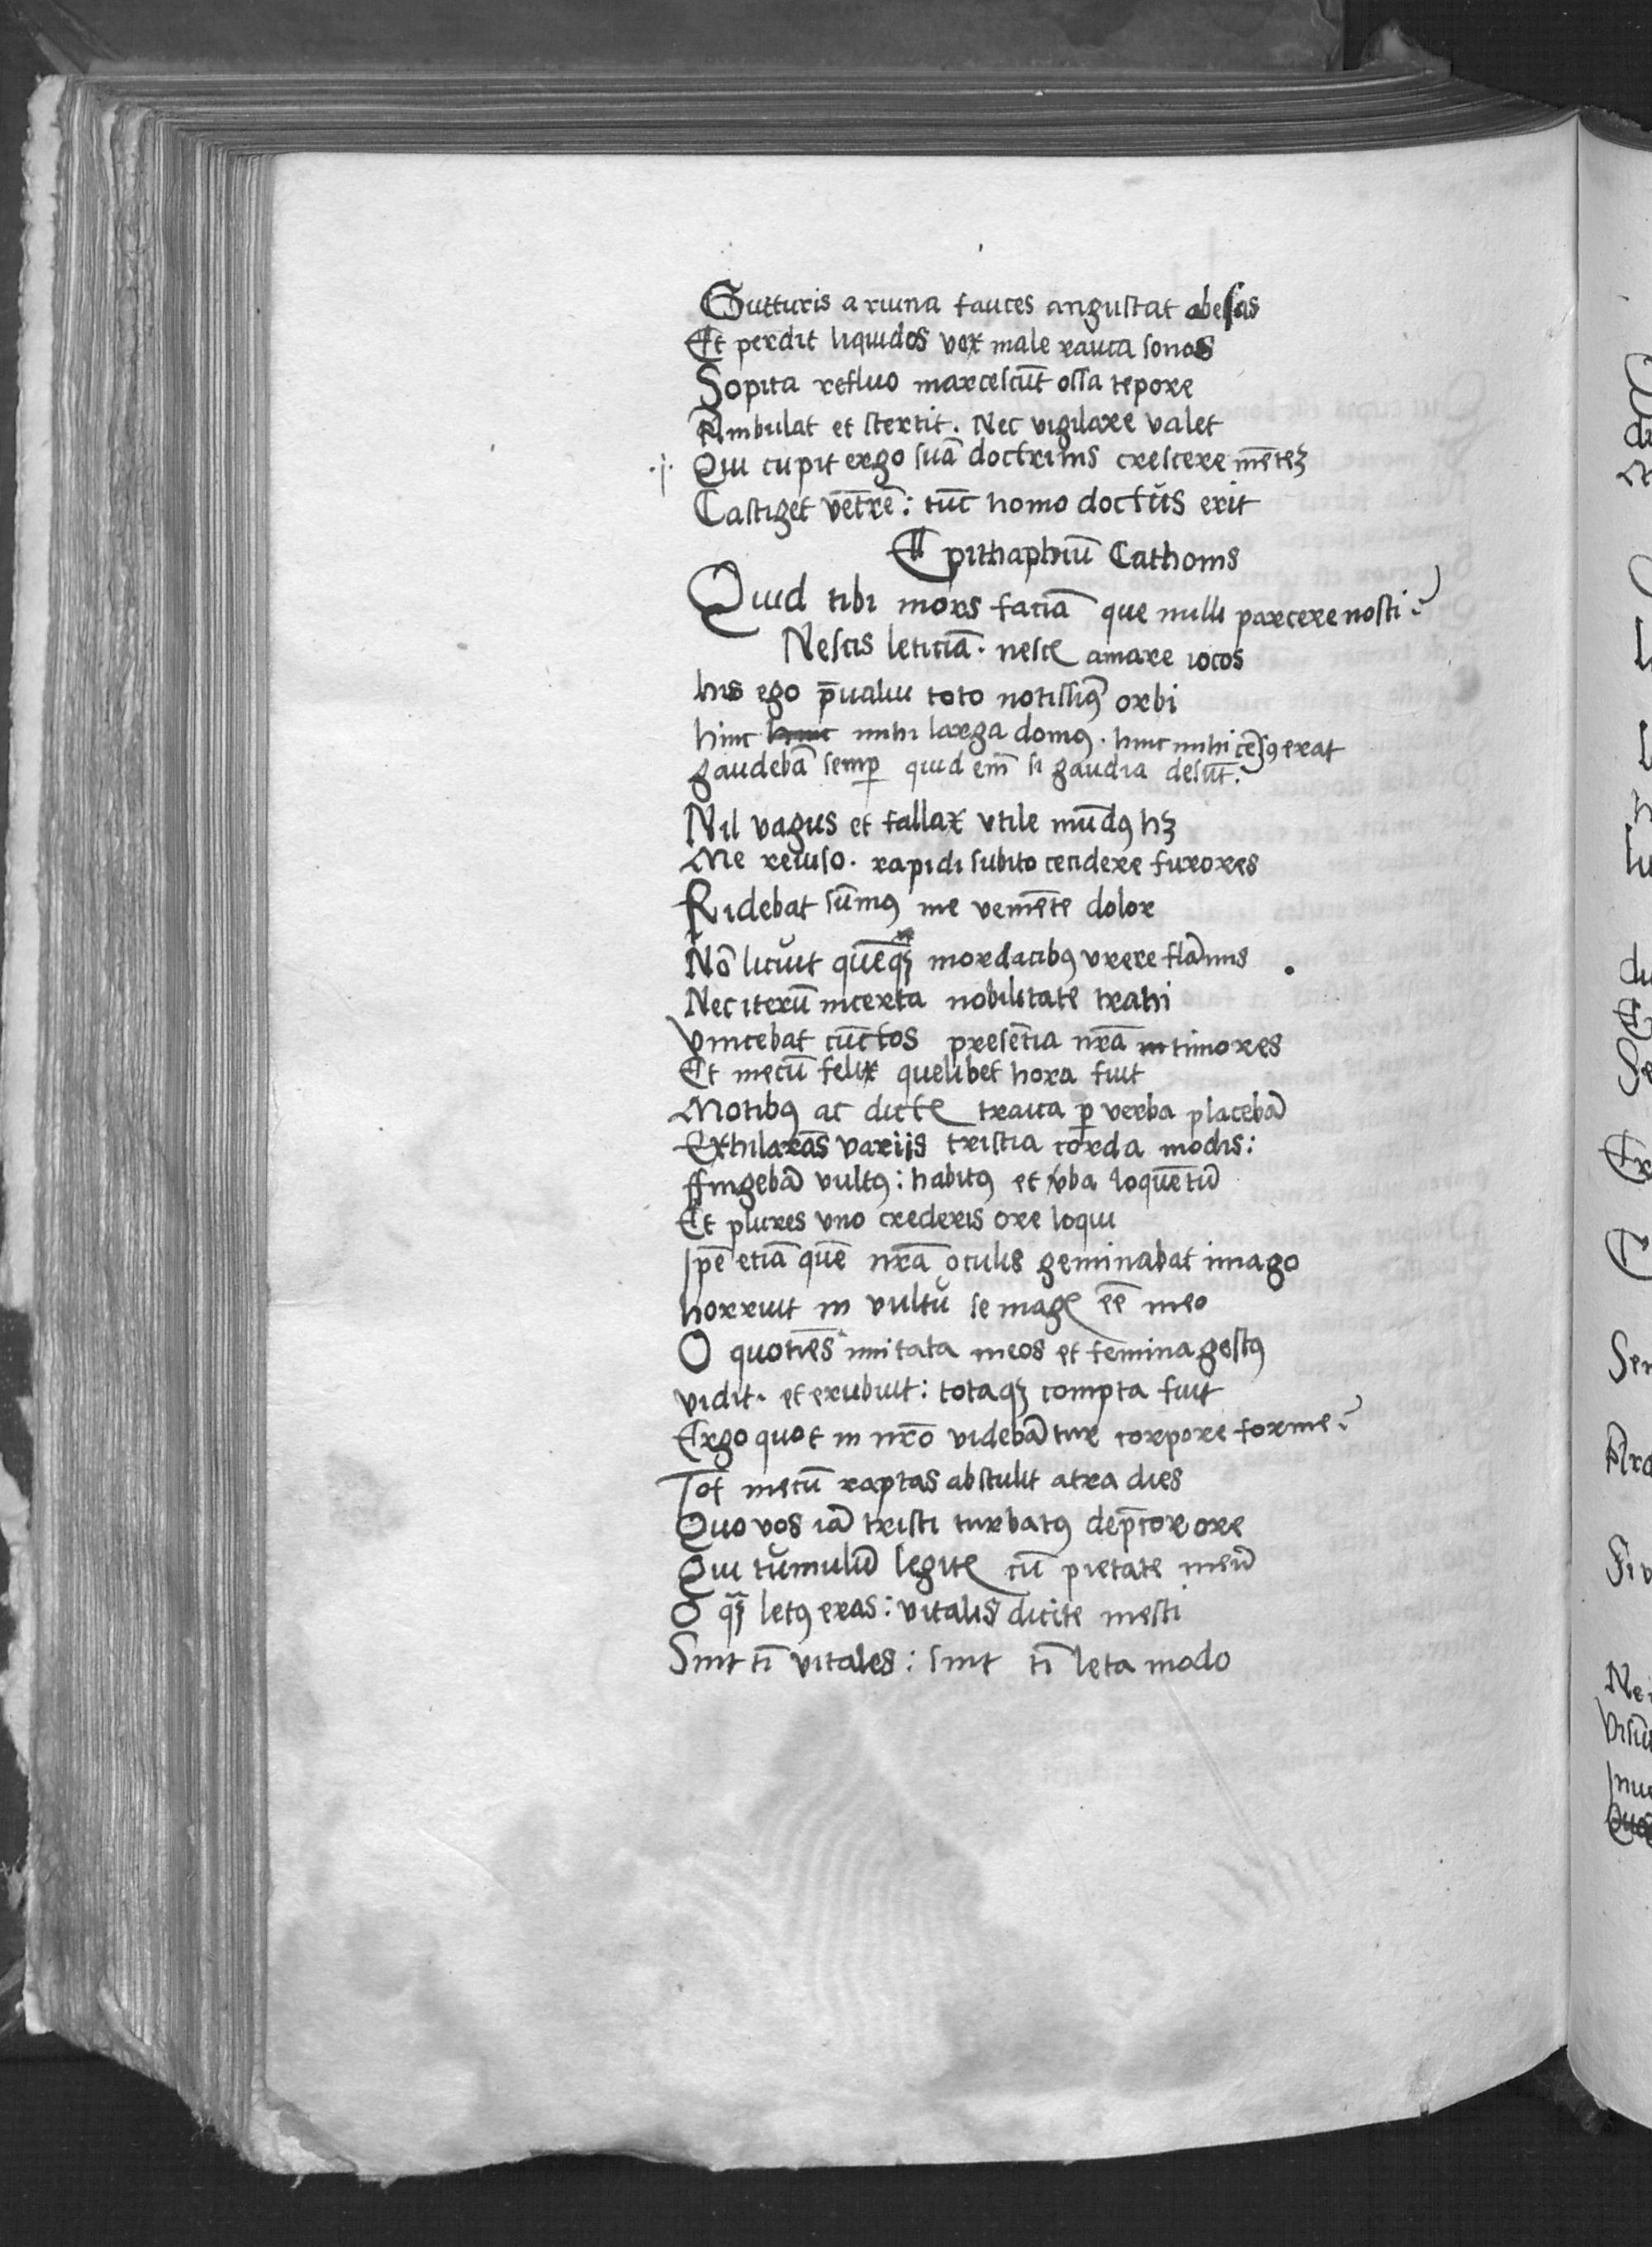 Gutturis aruina fauces angustat obesas
Et perdit liquidos vox male rauca sonos
Sopita refluo marcescūt ossa tepore
Ambulat et stertit. Nec vigilare valet
Qui cupit ergo suā doctrinis crescere mētēꝫ
Castiget vētrē: tūc homo doctus erit
Epithaphiū Cathonis
Quid tibi mors faciā que nulli parcere nosti?
Nescis leticiā. nescꝭ amare iocos
his ego p̄ualui toto notissimꝯ orbi
hinc hinc mihi larga domꝯ. hinc mihi cēsꝯ erat
gaudebā semꝑ quid em̄ si gaudia desūt.
Nil vagus et fallax vtile mūdꝯ hꝫ
Me reuiso. rapidi subito cecidere furores
Ridebat sūmꝯ me vemēte dolor
Nō licuit quēqꝫ mordacibꝯ vrere flām̄is
Nec iterū incerta nobilitate trahi
Vincebat cūctos presētia nr̄a timores
Et mecū felix quelibet hora fuit
Motibꝯ ac dictꝭ traica ꝑ verba placebā
Exhilarās variis tristia corda modis:
ffingebā vultꝯ: habitꝯ et v̄ba loquētiū
Et plures vno crederis ore loqui
Ipē etiā quē nr̄a oculis geminabat imago
horruit in vultu se magꝭ ēē meo
O quotiēs imitata meos et femina gestꝯ
vidit. et erubuit: totaqꝫ compta fuit
Ergo quot in nr̄o videbātur corpore forme?
Tot mecū raptas abstulit atra dies
Quo vos iā tristi turbatꝯ dep̄cor ore
Qui tumulū legitꝭ cū pietate meū
O qꝫ letꝯ eras: vitalis dicite mesti
Sint t̄i vitales: sint t̄i leta modo